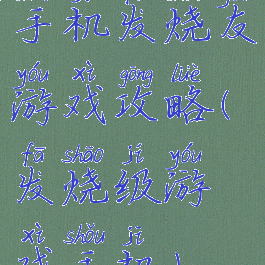 手机发烧友
yóu xì gōng lüè
游戏攻略(
fā shāo jí yóu
发烧级游
xì shǒu jī
戏手机)